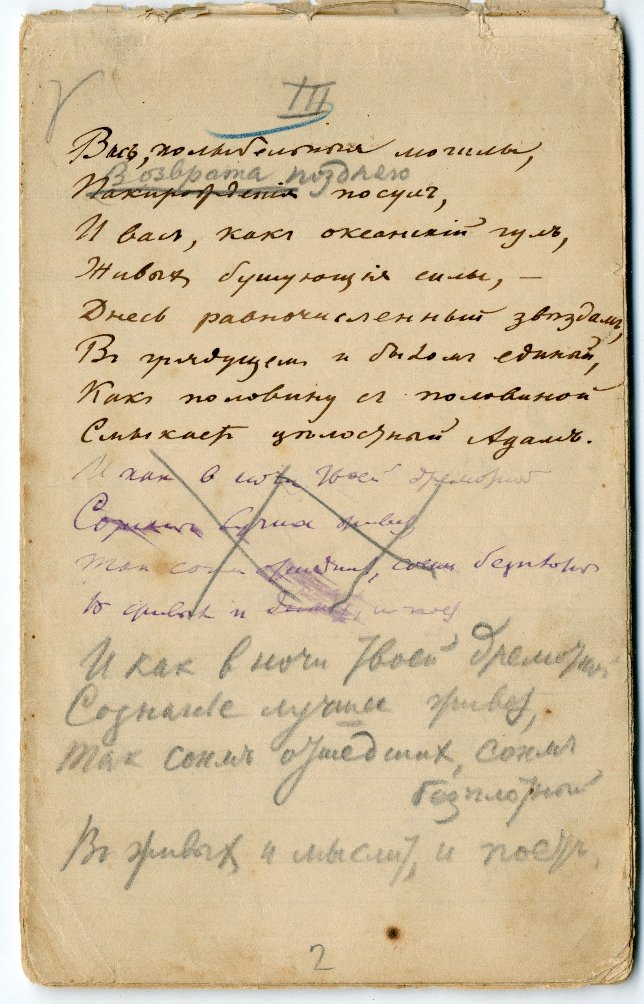 III
Васъ, колыбельныя могилы,
Возврата позднего
Пакирожденія посулъ,
И васъ, какъ океанскій гулъ,
Живых бушующія силы, —
Днесь равночисленный звѣздамъ,
Въ грядущемъ и быломъ единый,
Какъ половину съ половиной
Смыкаетъ цѣлостный Адамъ.
И как в ночи твоей дремотной
живет
Так сонм отшедших, сонм безплотный
В живых и и поет
И как в ночи твоей дремотной
Сознание лучшее живет,
Так сонмъ отшедших, сонмъ
безплотный
Въ живых и мыслит, и поетъ.
2